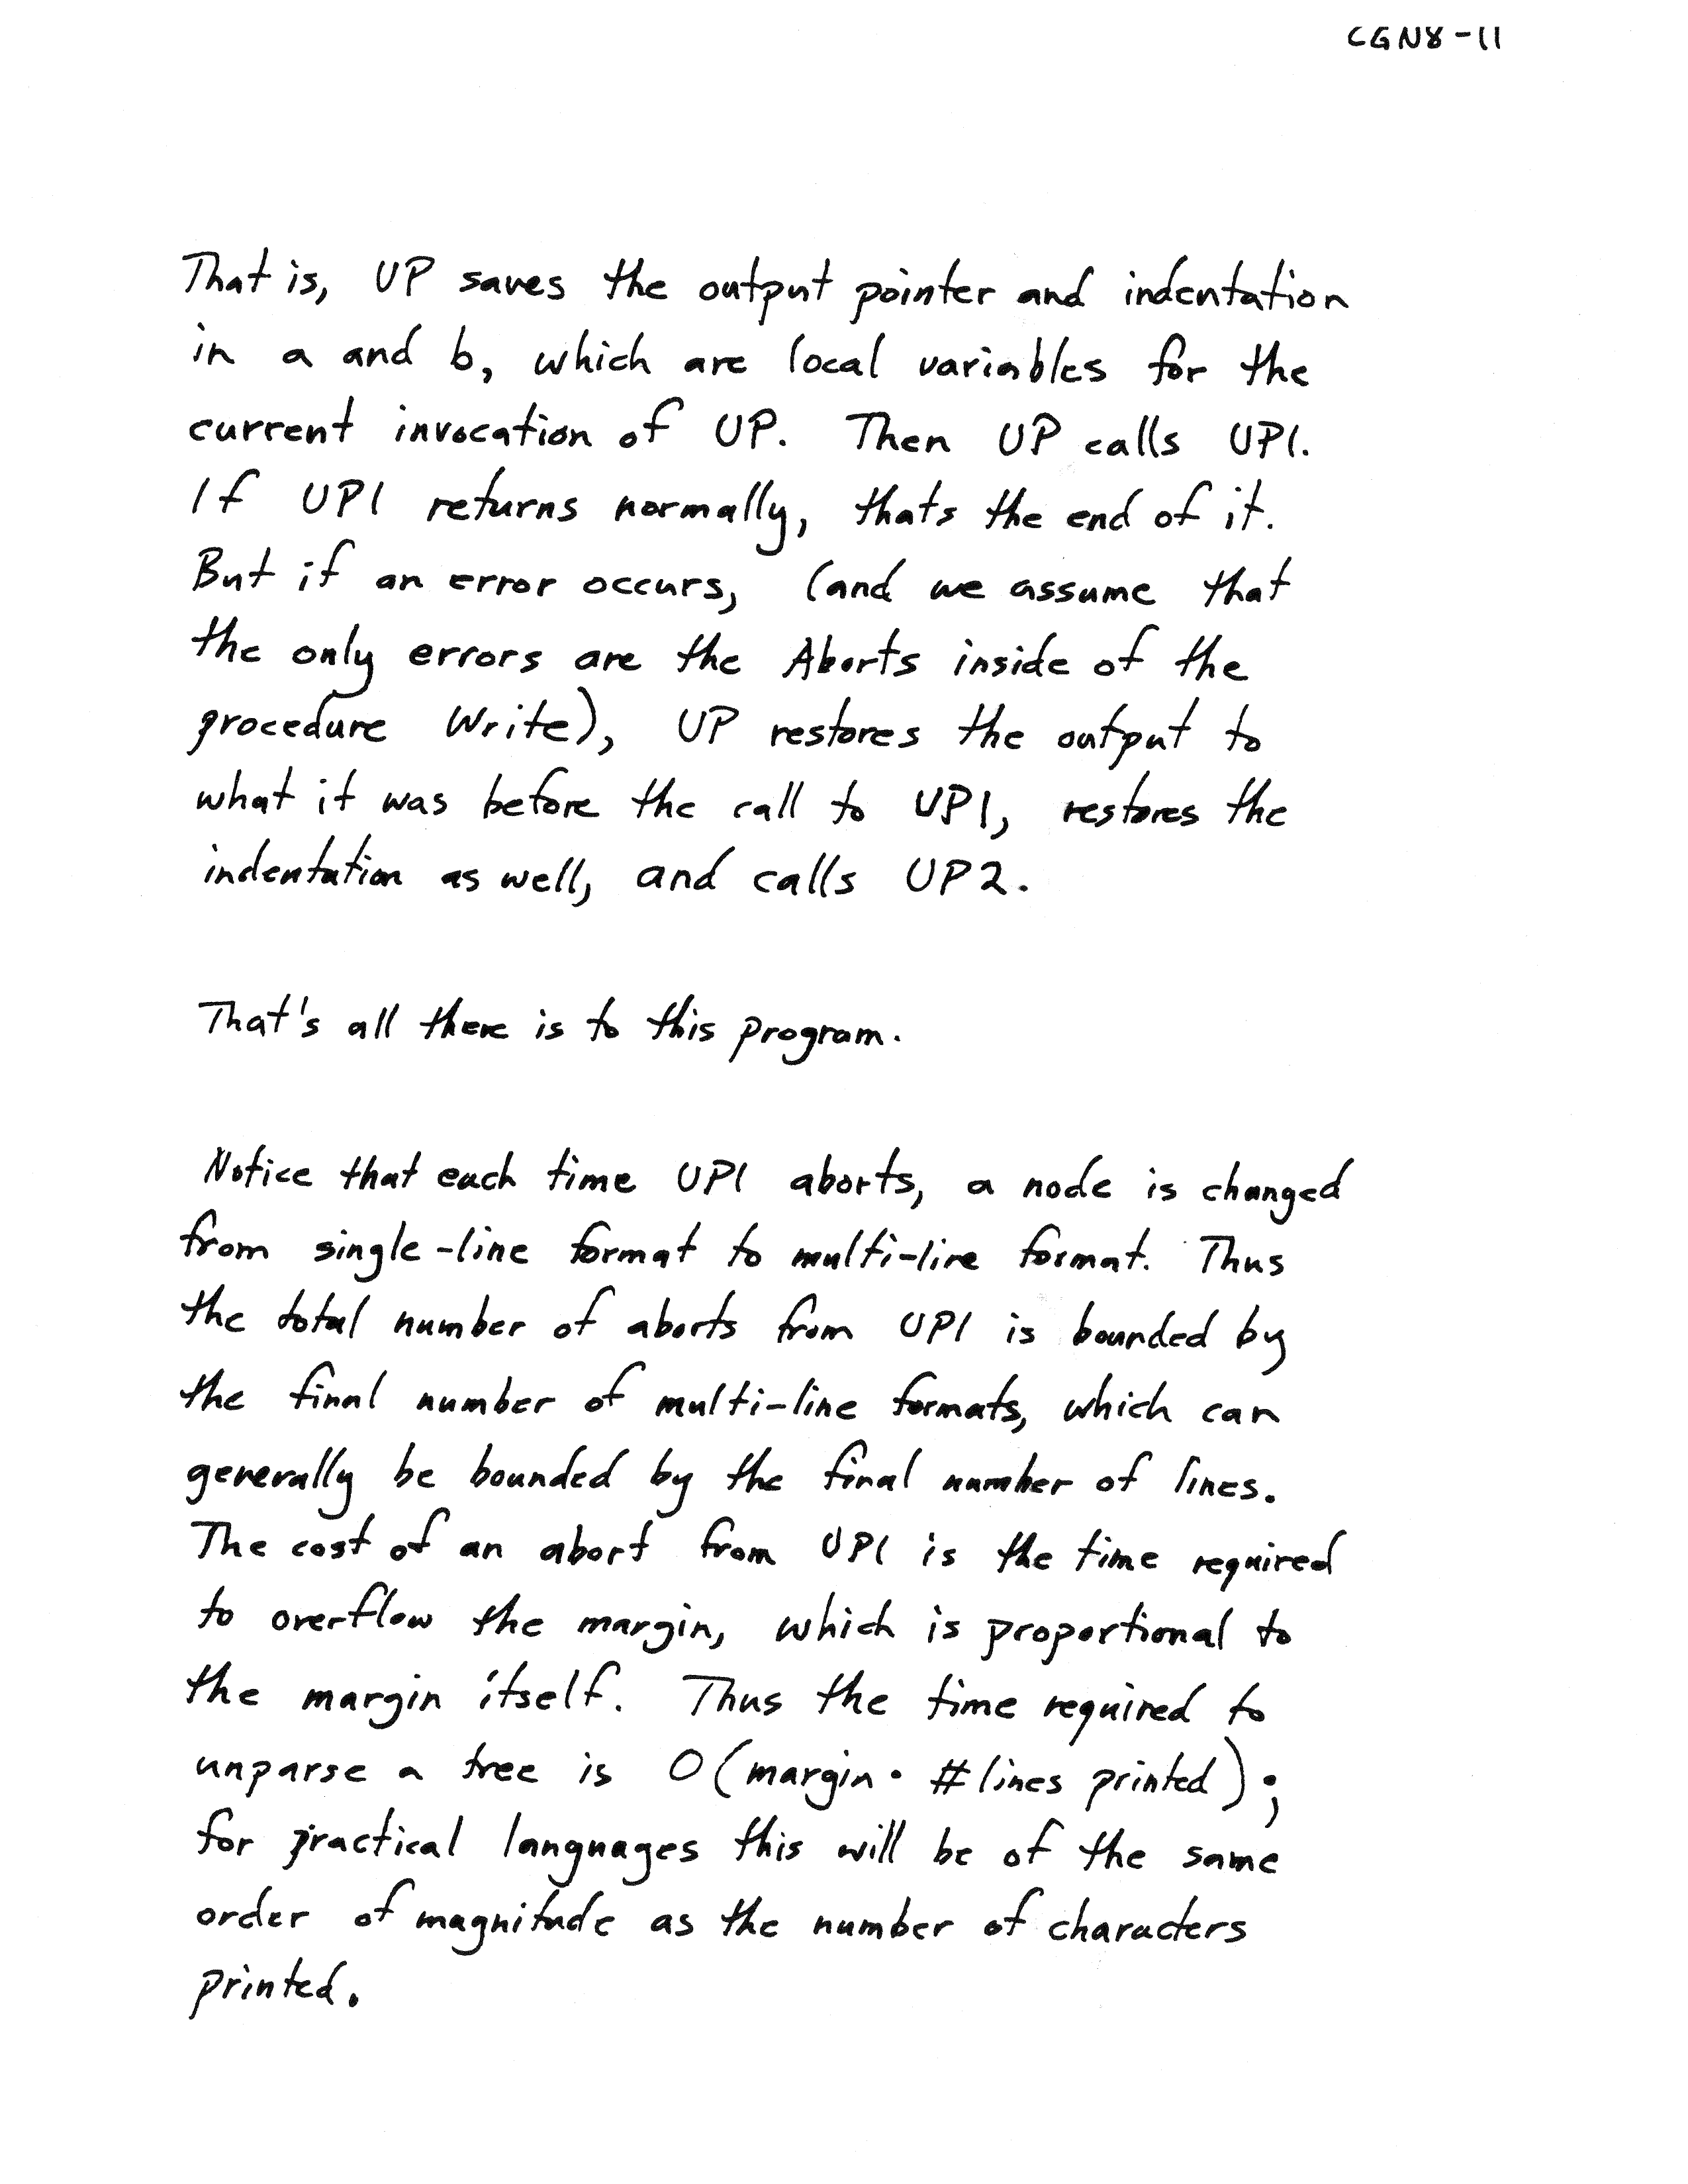 CGN8-11
That is, UP saves the output pointer and indentation
in a and b, which are local variables for the
current invocation of UP. Then UP calls UP1.
If UP1 returns normally, thats the end of it.
But if an error occurs, (and we assume that
the only errors are the Aborts inside of the
procedure Write), UP restores the output to
what it was before the call to UP1, restores the
indentation as well, and calls UP2.
That's all there is to this program.
Notice that each time UP1 aborts, a node is changed
from single-line format to multi-line format. Thus
the total number of aborts from UP1 is bounded by
the final number of multi-line formats, which can
generally be bounded by the final number of lines.
The cost of an abort from UP1 is the time required
to overflow the margin, which is proportional to
the margin itself. Thus the time required to
unparse a tree is O(margin · #lines printed);
for practical languages this will be of the same
order of magnitude as the number of characters
printed.